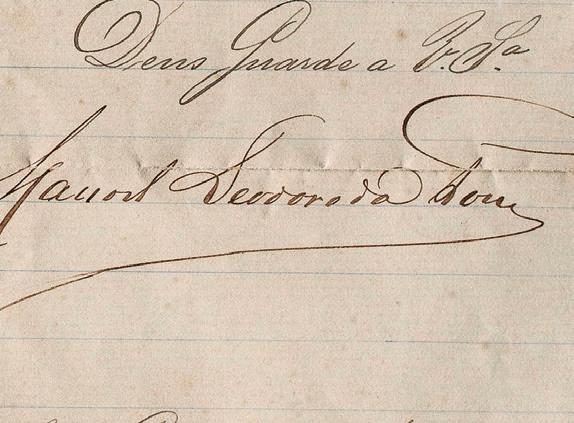 Deus Guarde a V. Sª
Manoel Deodoro da Fonc